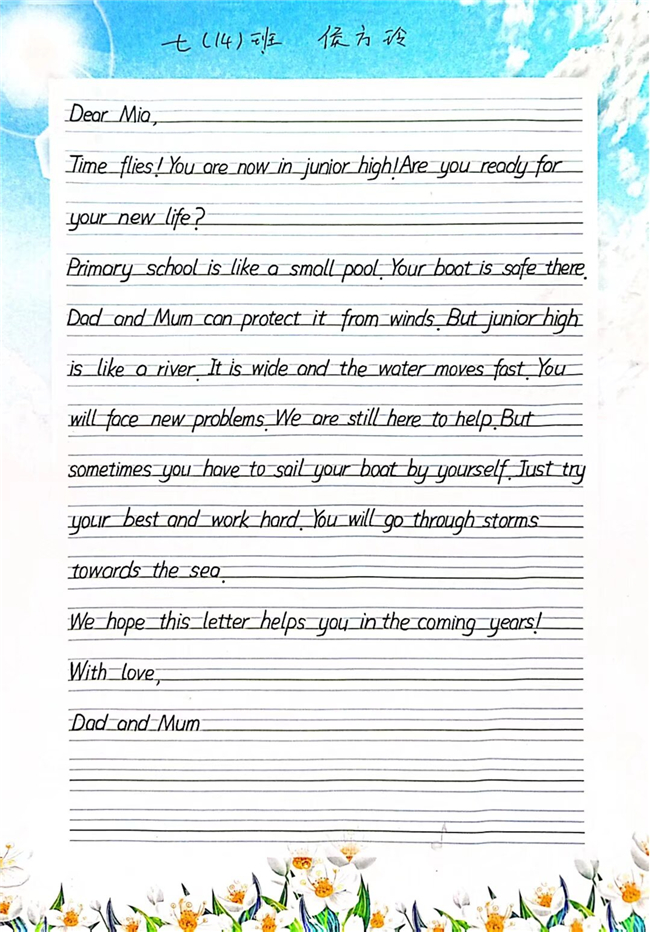 七(14)班 侯方玲
Dear Mia,
Time flies! You are now in junior high! Are you ready for
your new life?
Primary school is like a small pool. Your boat is safe there.
Dad and Mum can protect it from winds. But junior high
is like a river. It is wide and the water moves fast. You
will face new problems. We are still here to help. But
sometimes you have to sail your boat by yourself. Just try
your best and work hard. You will go through storms
towards the sea.
We hope this letter helps you in the coming years!
With love,
Dad and Mum